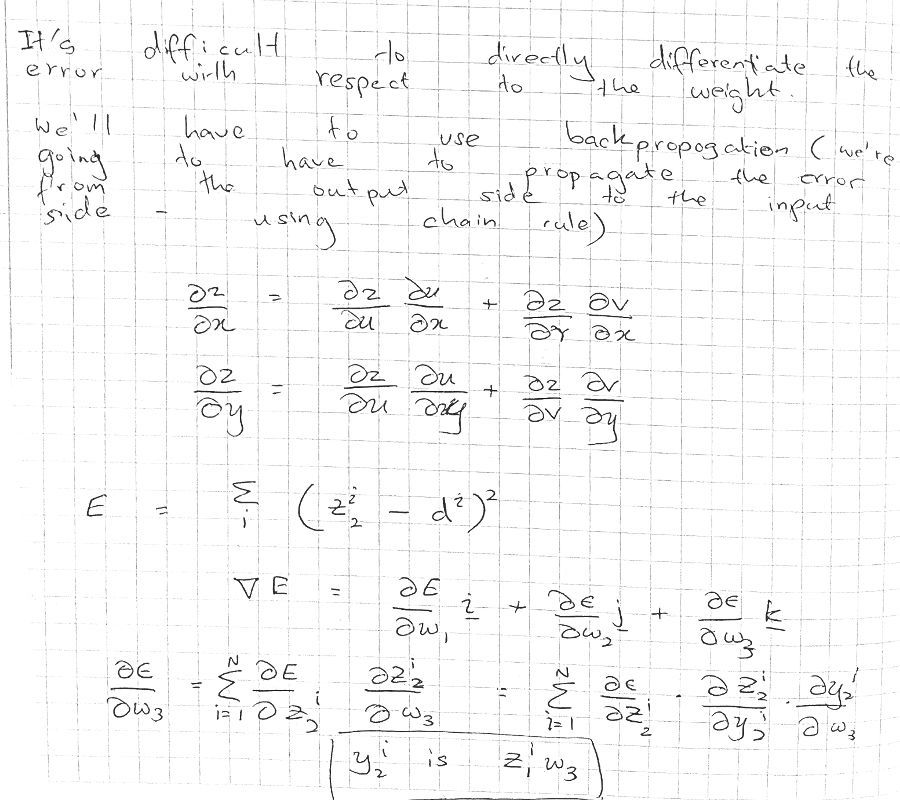 It's difficult to directly differentiate the
error with respect to the weight.
We'll have to use backpropogation (we're
going to have to propagate the error
from the output side to the input
side - using chain rule)
∂z/∂x = ∂z/∂u ∂u/∂x + ∂z/∂v ∂v/∂x
∂z/∂y = ∂z/∂u ∂u/∂y + ∂z/∂v ∂v/∂y
E = Σ_i (z_2^i - d^i)^2
∇E = ∂E/∂w_1 i + ∂E/∂w_2 j + ∂E/∂w_3 k
∂E/∂w_3 = Σ_{i=1}^N ∂E/∂z_2^i ∂z_2^i/∂w_3 = Σ_{i=1}^N ∂E/∂z_2^i · ∂z_2^i/∂y_2^i · ∂y_2^i/∂w_3
y_2^i is z_1^i w_3